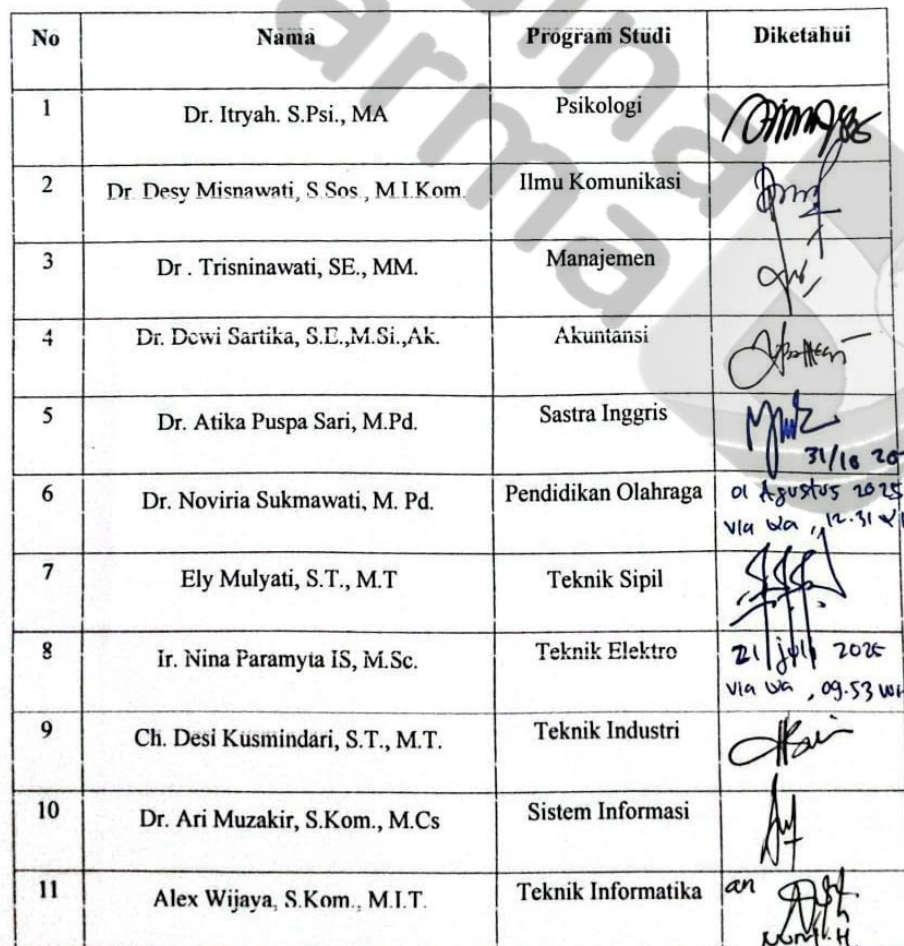 No Nama Program Studi Diketahui
1 Dr. Itryah. S.Psi., MA Psikologi
2 Dr. Desy Misnawati, S.Sos., M.I.Kom. Ilmu Komunikasi
3 Dr . Trisninawati, SE., MM. Manajemen
4 Dr. Dewi Sartika, S.E.,M.Si.,Ak. Akuntansi
5 Dr. Atika Puspa Sari, M.Pd. Sastra Inggris
6 Dr. Noviria Sukmawati, M. Pd. Pendidikan Olahraga 01 Agustus 2025
via wa , 12.31
7 Ely Mulyati, S.T., M.T Teknik Sipil
8 Ir. Nina Paramyta IS, M.Sc. Teknik Elektro 21 juli 2025
via wa , 09.53
9 Ch. Desi Kusmindari, S.T., M.T. Teknik Industri
10 Dr. Ari Muzakir, S.Kom., M.Cs Sistem Informasi
11 Alex Wijaya, S.Kom., M.I.T. Teknik Informatika an